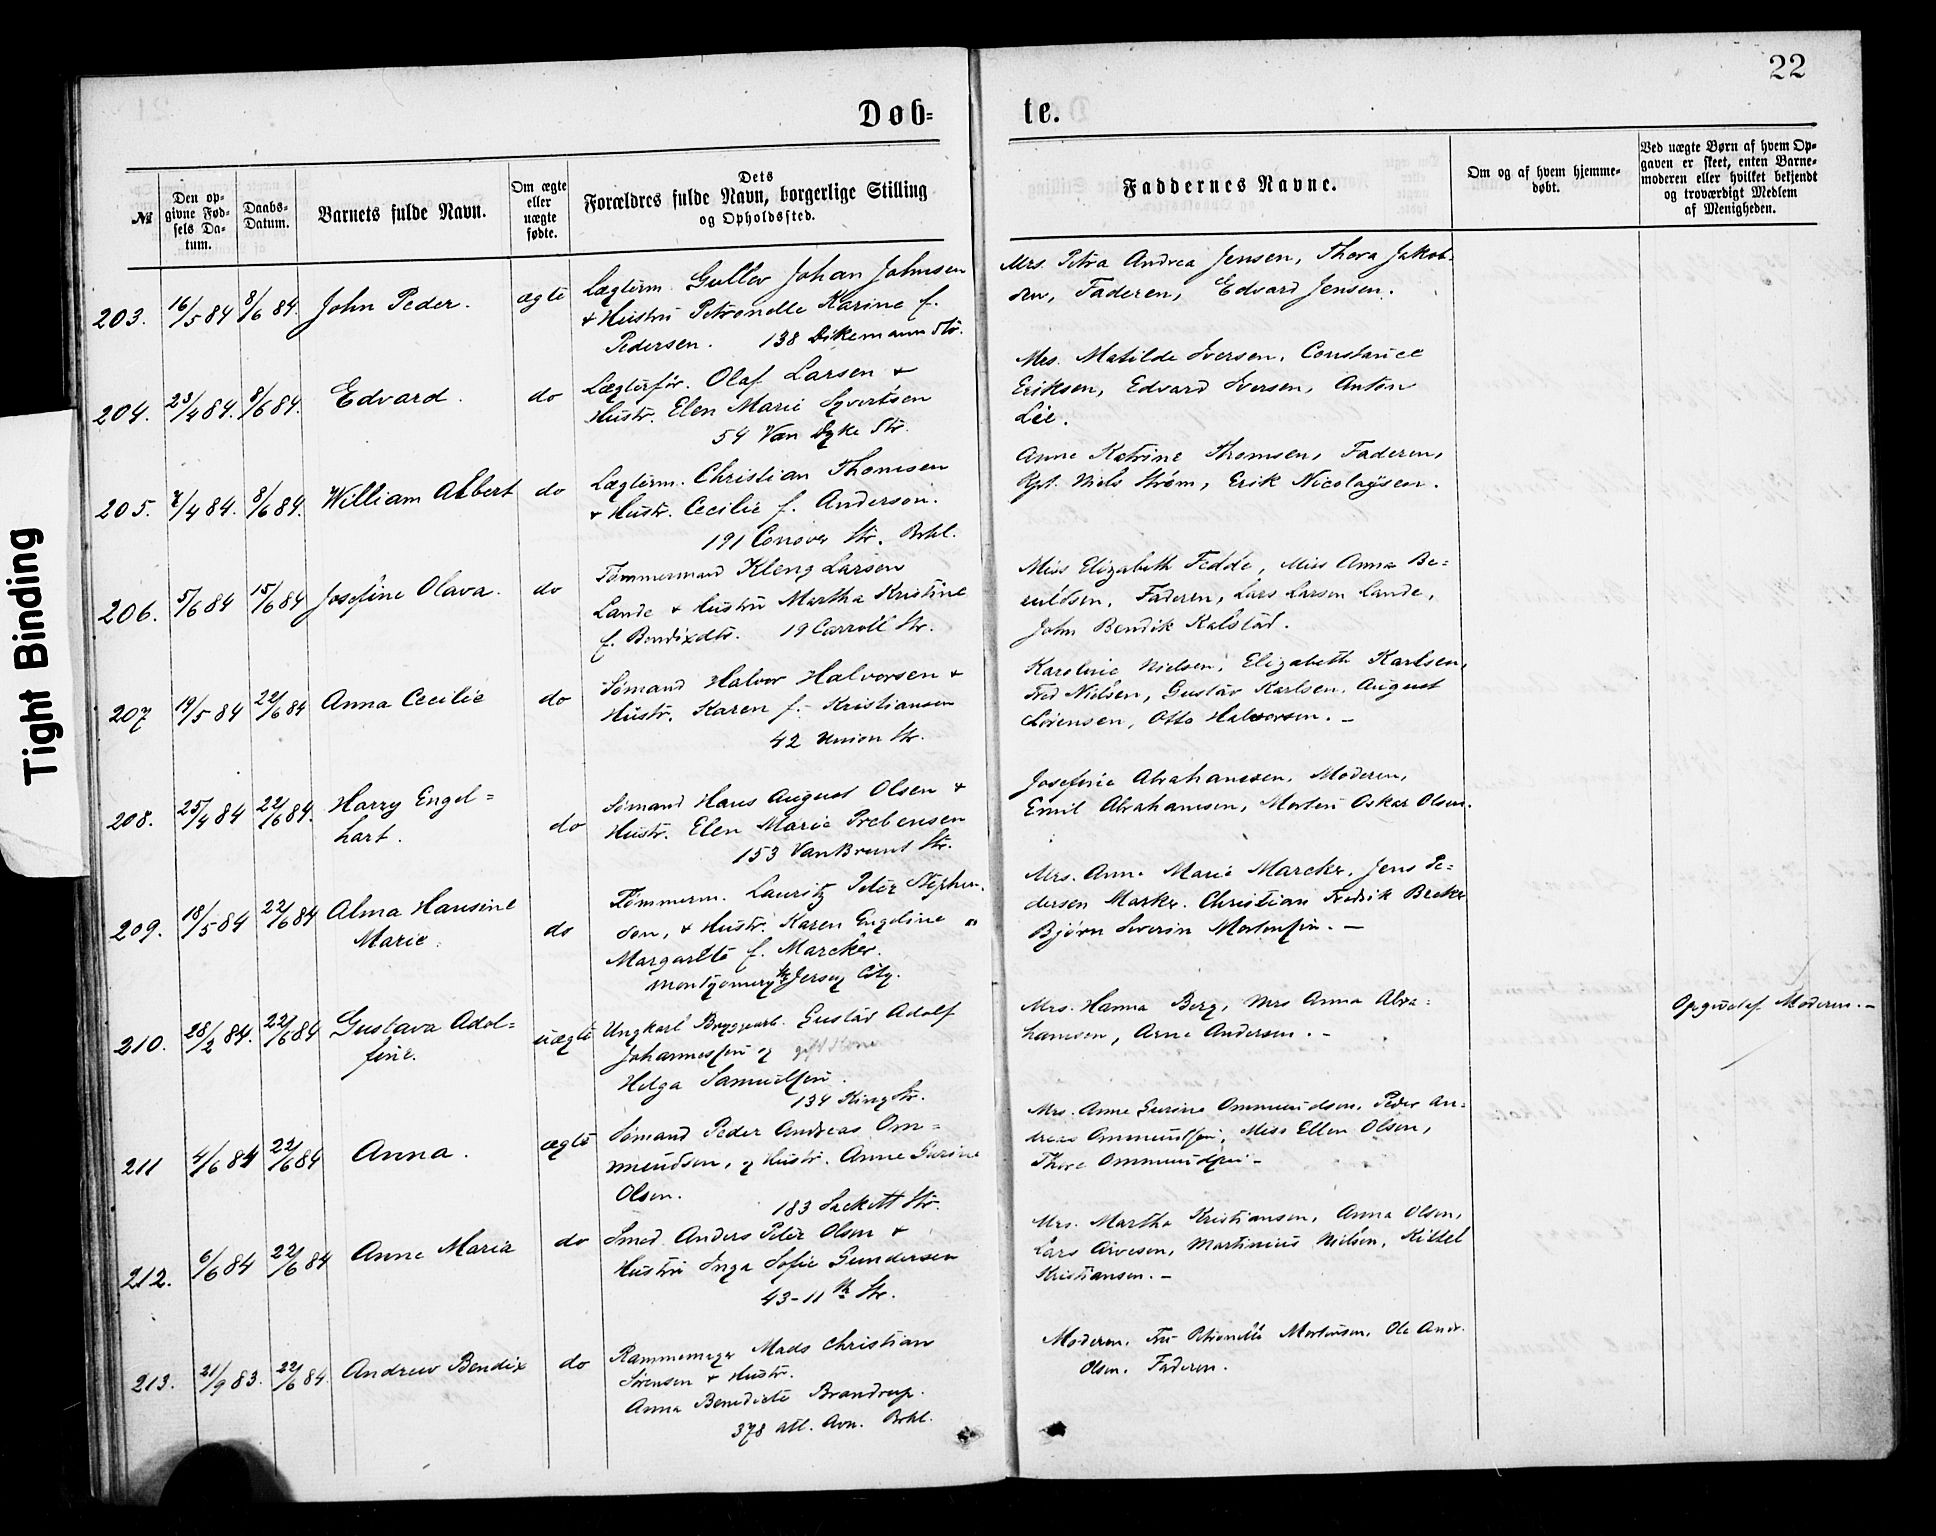 22
Døb-
te.
Tight Binding
№
Den op-
givne Fød-
sels Da-
tum.
Daabs-
Datum.
Barnets fulde Navn.
Om ægte
eller
uægte
fødte.
Dets
Forældres fulde Navn, borgerlige Stilling
og Opholdssted.
Faddernes Navne.
Om og af hvem hjemme-
døbt.
Ved uægte Børn af hvem Op-
gaven er skeet, enten Barne-
moderen eller hvilket bekjendt
og troværdigt Medlem
af Menigheden.
203. 16/5 84 8/6 84. John Peder. ægte
Lægterm. Gullev Johan Johnsen
+ Hustru Petronelle Karine f.
Pedersen. 138 Dikemann Str.
Mrs. Petra Andrea Jensen, Thora Jakob-
sen, Faderen, Edvard Jensen.
204. 23/4 84. 8/6 84. Edvard. do
Lægterför. Olaf Larsen +
Hustr. Elen Marie Syvertsen
54 Van Dyke Str.
Mrs. Matilde Iversen, Constance
Eriksen, Edvard Iversen, Anton
Lie.
205. 7/4 84. 8/6 84. William Albert do
Lægterm. Christian Thomsen
+ Hustr. Cecilie f. Anderson.
191 Conover Str. Brkl.
Anne Katrine Thomsen, Faderen,
Kpt. Niels Strøm, Erik Nicolaysen.
206. 5/6 84 15/6 84 Josefine Olava. do
Tømmermand Kleng Larsen
Lande + Hustru Martha Kristine
f. Bendixdtr. 19 Carroll Str.
Miss Elizabeth Fedde, Miss Anna Be-
ruldsen, Faderen, Lars Larsen Lande,
John Bendik Kalstad.
207 19/5 84 22/6 84 Anna Cecilie do
Sømand Halvor Halvorsen +
Hustr. Karen f. Kristiansen
42 Union Str.
Karoline Nielsen, Elizabeth Karlsen,
Fred Nielsen, Gustav Karlsen, August
Sørensen, Otto Halvorsen. —
208. 25/4 84 22/6 84. Harry Engel-
hart. do
Sømand Hans August Olsen +
Hustr. Elen Marie Prebensen
153 Van Brunt Str.
Josefine Abrahamsen, Moderen,
Emil Abrahamsen, Morten Oskar Olsen.
209. 18/5 84 22/6 84 Alma Hansine
Marie. do
Tømmerm. Lauritz Peter Stephen-
sen, + Hustr. Karen Engeline
Margarete f. Marcker.
Montgomery Str Jersey City.
Mrs. Anne Marie Marcker, Jens Pe-
dersen Marker. Christian Fredrik Breker
Bjørn Severin Mortensen. —
210. 28/2 84. 22/6 84 Gustava Adol-
fine. uægte
Ungkarl Bryggearb. Gustav Adolf
Johannessen og gift Kone
Helga Samuelsen.
134 King Str.
Mrs. Hanna Berg, Mrs Anna Abra-
hamsen, Arne Andersen. —
Opgivet af Moderen. —
211 4/6 84 22/6 84 Anna. ægte
Sømand Peder Andreas Om-
mundsen, og Hustr. Anne Gurine
Olsen.
183 Sackett Str.
Mrs. Anne Gurine Ommundsen, Peder An-
dreas Ommundsen, Miss Ellen Olsen,
Thore Ommundsen —
212. 6/6 84 22/6 84 Anne Marie do
Smed Anders Peter Olsen +
Hustru Inga Sofie Gundersen
43 - 11th Str.
Mrs. Martha Kristiansen, Anna Olsen,
Lars Arvesen, Martinius Nielsen, Kittel
Kristiansen. —
213. 21/9 83. 22/6 84. Andrew Bendix do
Rammemager Mads Christian
Sørensen + Hustr.
Anna Benedicte Brandrup.
378 Atl. Avn. Brkl.
Moderen, Fru Petronelle Mortensen, Ole Andr.
Olsen. Faderen.